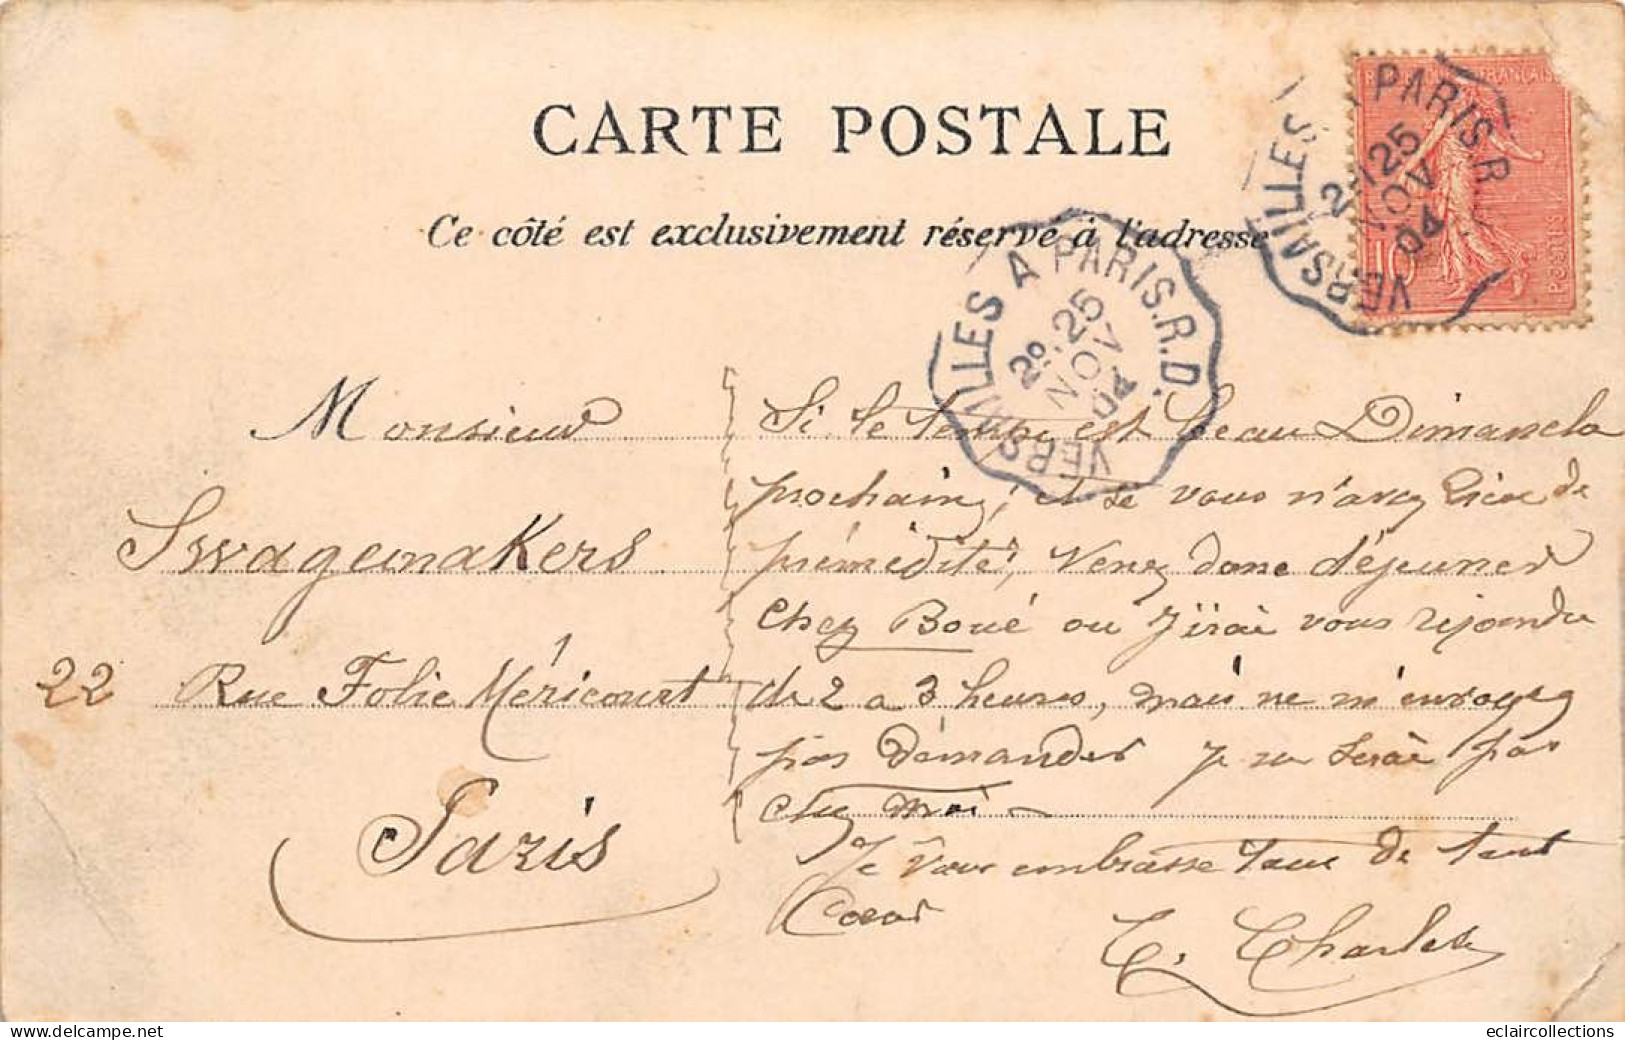 CARTE POSTALE
Ce côté est exclusivement réservé à l'adresse
POSTES
10
VERSAILLES A PARIS.R
25
NOV
04
VERSAILLES A PARIS.R.D.
2º.25
NOV
04
Monsieur
Swagemakers
22 Rue Folie Méricourt
Paris
Si le temps est beau Dimanche
prochain, et si vous n'avez rien de
prémédité, Venez donc déjeuner
chez Boué ou j'irai vous rejoindre
de 2 a 3 heures, mais ne m'envoyez
pas démander je ne serai pas
chez moi
Je vous embrasse tous de tout
Coeur
C. Charles
eclaircollections